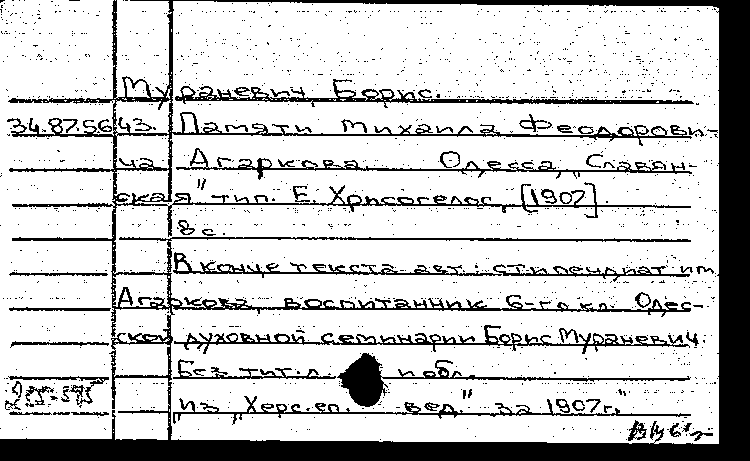 Мураневич, Борис.
34.87.5643. Памяти Михаила Феодорови-
ча Агаркова. Одесса, „Славян-
ская" тип. Е. Хрисогелос, [1907].
8 с.
В конце текста авт.: стипендиат им.
Агаркова, воспитанник 6-го кл. Одес-
ской духовной семинарии Борис Мураневич.
Без тит. л. и обл.
„Из „Херс. еп. вед." за 1907г."